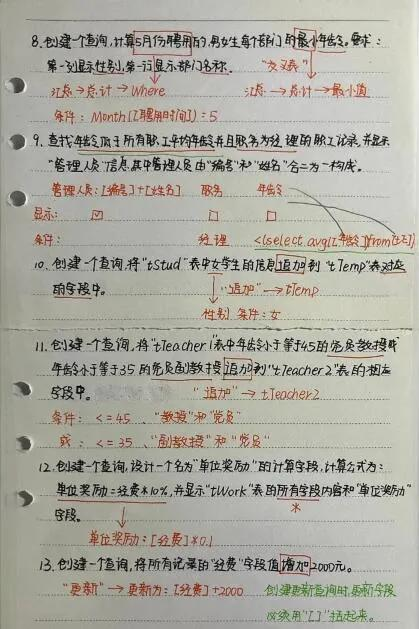 8.创建一个查询,计算5月份聘用的,男女生每个部门的最小年龄。要求:
第一列显示性别,第一行显示部门名称。 "交叉表"
汇总→总计→Where 汇总→总计→最小值
条件: Month([聘用时间])=5
9.查找年龄低于所有职工平均年龄并且职务为经理的职工记录,并显示
"管理人员"信息,其中管理人员由"编号"和"姓名"合二为一构成。
管理人员:[编号]+[姓名] 职务 年龄
显示: ☑ □ □
条件: 经理 <(select avg([年龄])from
10.创建一个查询,将"tStud"表中女学生的信息追加到"tTemp"表对应
的字段中。 "追加"→tTemp
性别 条件:女
11.创建一个查询,将"tTeacher1"表中年龄小于等于45的党员教授或
年龄小于等于35的党员副教授追加到"tTeacher2"表的相应
字段中。 "追加"→tTeacher2
条件: <=45、"教授"和"党员"
或: <=35、"副教授"和"党员"
12.创建一个查询,设计一个名为"单位奖励"的计算字段,计算公式为:
单位奖励=经费*10%,并显示"tWork"表的所有字段内容和"单位奖励"
字段。 *
单位奖励:[经费]*0.1
13.创建一个查询,将所有记录的"经费"字段值增加2000元。
"更新"→更新为:[经费]+2000 创建更新查询时,更新字段
必须用"[]"括起来。